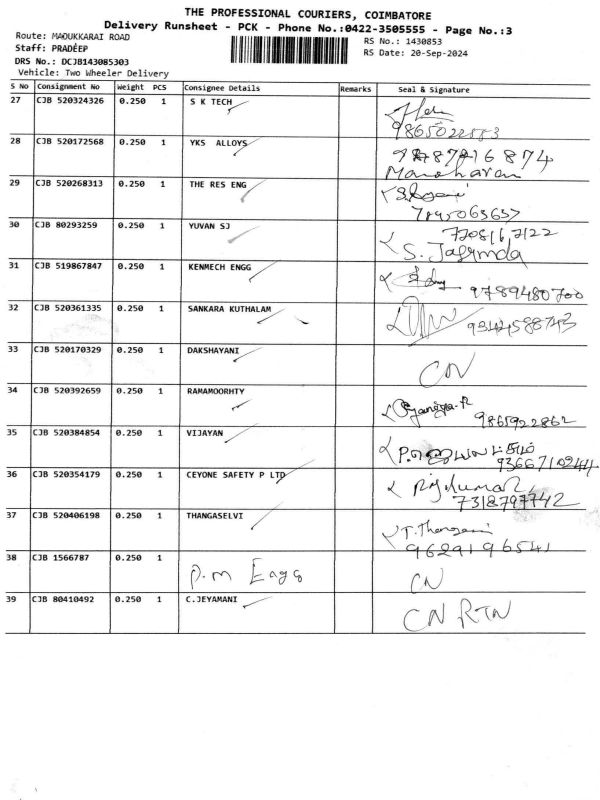 THE PROFESSIONAL COURIERS, COIMBATORE
Delivery Runsheet - PCK - Phone No.:0422-3505555 - Page No.:3
Route: MADUKKARAI ROAD
RS No.: 1430853
Staff: PRADEEP
RS Date: 20-Sep-2024
DRS No.: DCJB143085303
Vehicle: Two Wheeler Delivery
S No Consignment No Weight PCS Consignee Details Remarks Seal & Signature
27 CJB 520324326 0.250 1 S K TECH
9865022553
28 CJB 520172568 0.250 1 YKS ALLOYS
Manoharan
29 CJB 520268313 0.250 1 THE RES ENG
30 CJB 80293259 0.250 1 YUVAN SJ
31 CJB 519867847 0.250 1 KENMECH ENGG 9789480700
32 CJB 520361335 0.250 1 SANKARA KUTHALAM 9344588743
33 CJB 520170329 0.250 1 DAKSHAYANI CN
34 CJB 520392659 0.250 1 RAMAMOORHTY
9865922862
35 CJB 520384854 0.250 1 VIJAYAN
9366710244
36 CJB 520354179 0.250 1 CEYONE SAFETY P LTD Rajkumar
7318797742
37 CJB 520406198 0.250 1 THANGASELVI
9629196541
38 CJB 1566787 0.250 1 P.M Eags CN
39 CJB 80410492 0.250 1 C.JEYAMANI CN RTN